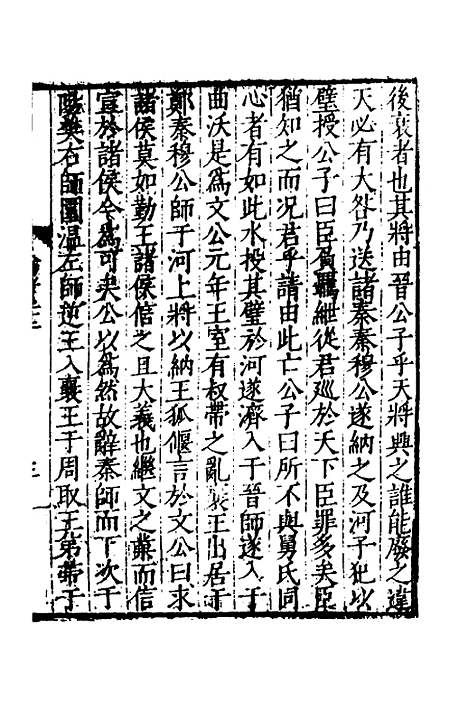 後衰者也其將由晉公子乎天將興之誰能廢之違
天必有大咎乃送諸秦秦穆公遂納之及河子犯以
璧授公子曰臣負羈紲從君廵於天下臣罪多矣臣
猶知之而况君乎請由此亡公子曰所不與舅氏同
心者有如此水投其璧於河遂濟入于晉師遂入于
曲沃是爲文公元年王室有叔帶之亂襄王出居于
鄭秦穆公師于河上將以納王狐偃言於文公曰求
諸侯莫如勤王諸侯信之且大義也繼文之業而信
宣於諸侯今爲可矣公以爲然故辭秦師而下次于
陽樊右師圍温左師逆王入襄王于周取王弟帶于